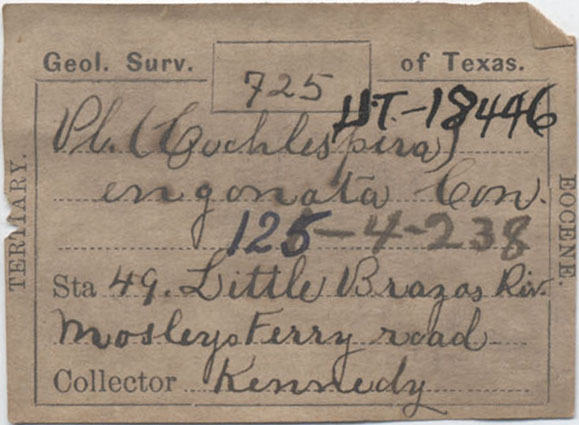 Geol. Surv. of Texas.
725
UT-18446
Pl. (Cochlespira)
engonata Con.
125-4-238
Sta 49. Little Brazos Riv.
Mosleys Ferry road
Collector Kennedy
TERTIARY.
EOCENE.